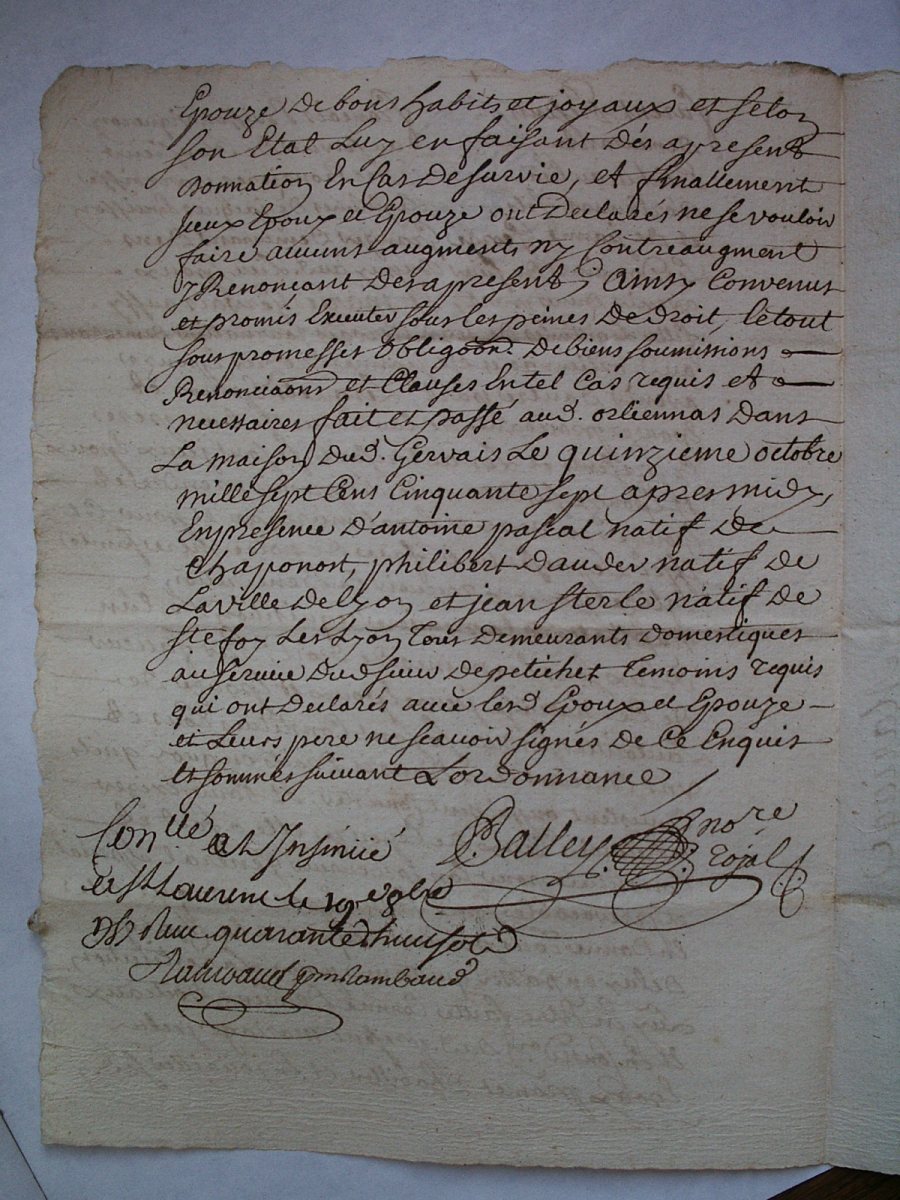 Epouze de bons habits et joyaux et selon
son Etat Luy en faisant dés apresent
donnation En Cas de survie, et finallement
sieux Epoux et Epouze ont declarés ne se vouloir
faire aucuns augments ny Contreaugment
y Renonçant des apresent; Ainsy Convenus
et promis Executer sous les peines de droit, le tout
sous promesses obligaons. de biens soumissions
Renonciaons et Clauses En tel Cas requis et
necessaires fait et passé aud. orliennas dans
La maison dud. Gervais Le quinzieme octobre
mille sept Cens Cinquante sept apres midy,
En presence d'antoine pascal natif de
Chaponost, philibert dauder natif de
La ville de Lyon et jean Sterle natif de
Ste foy Les Lyon tous demeurants domestiques
au service dud sieur de petichet temoins requis
qui ont declarés avec lesd Epoux et Epouze
et Leurs pere ne scavoir signés de Ce Enquis
et sommés suivant L'ordonnance
Balley nore
royal
Conllé et Insinué
a St Laurent le 19e 8bre
Reçu quarante huit sols
Rambaud